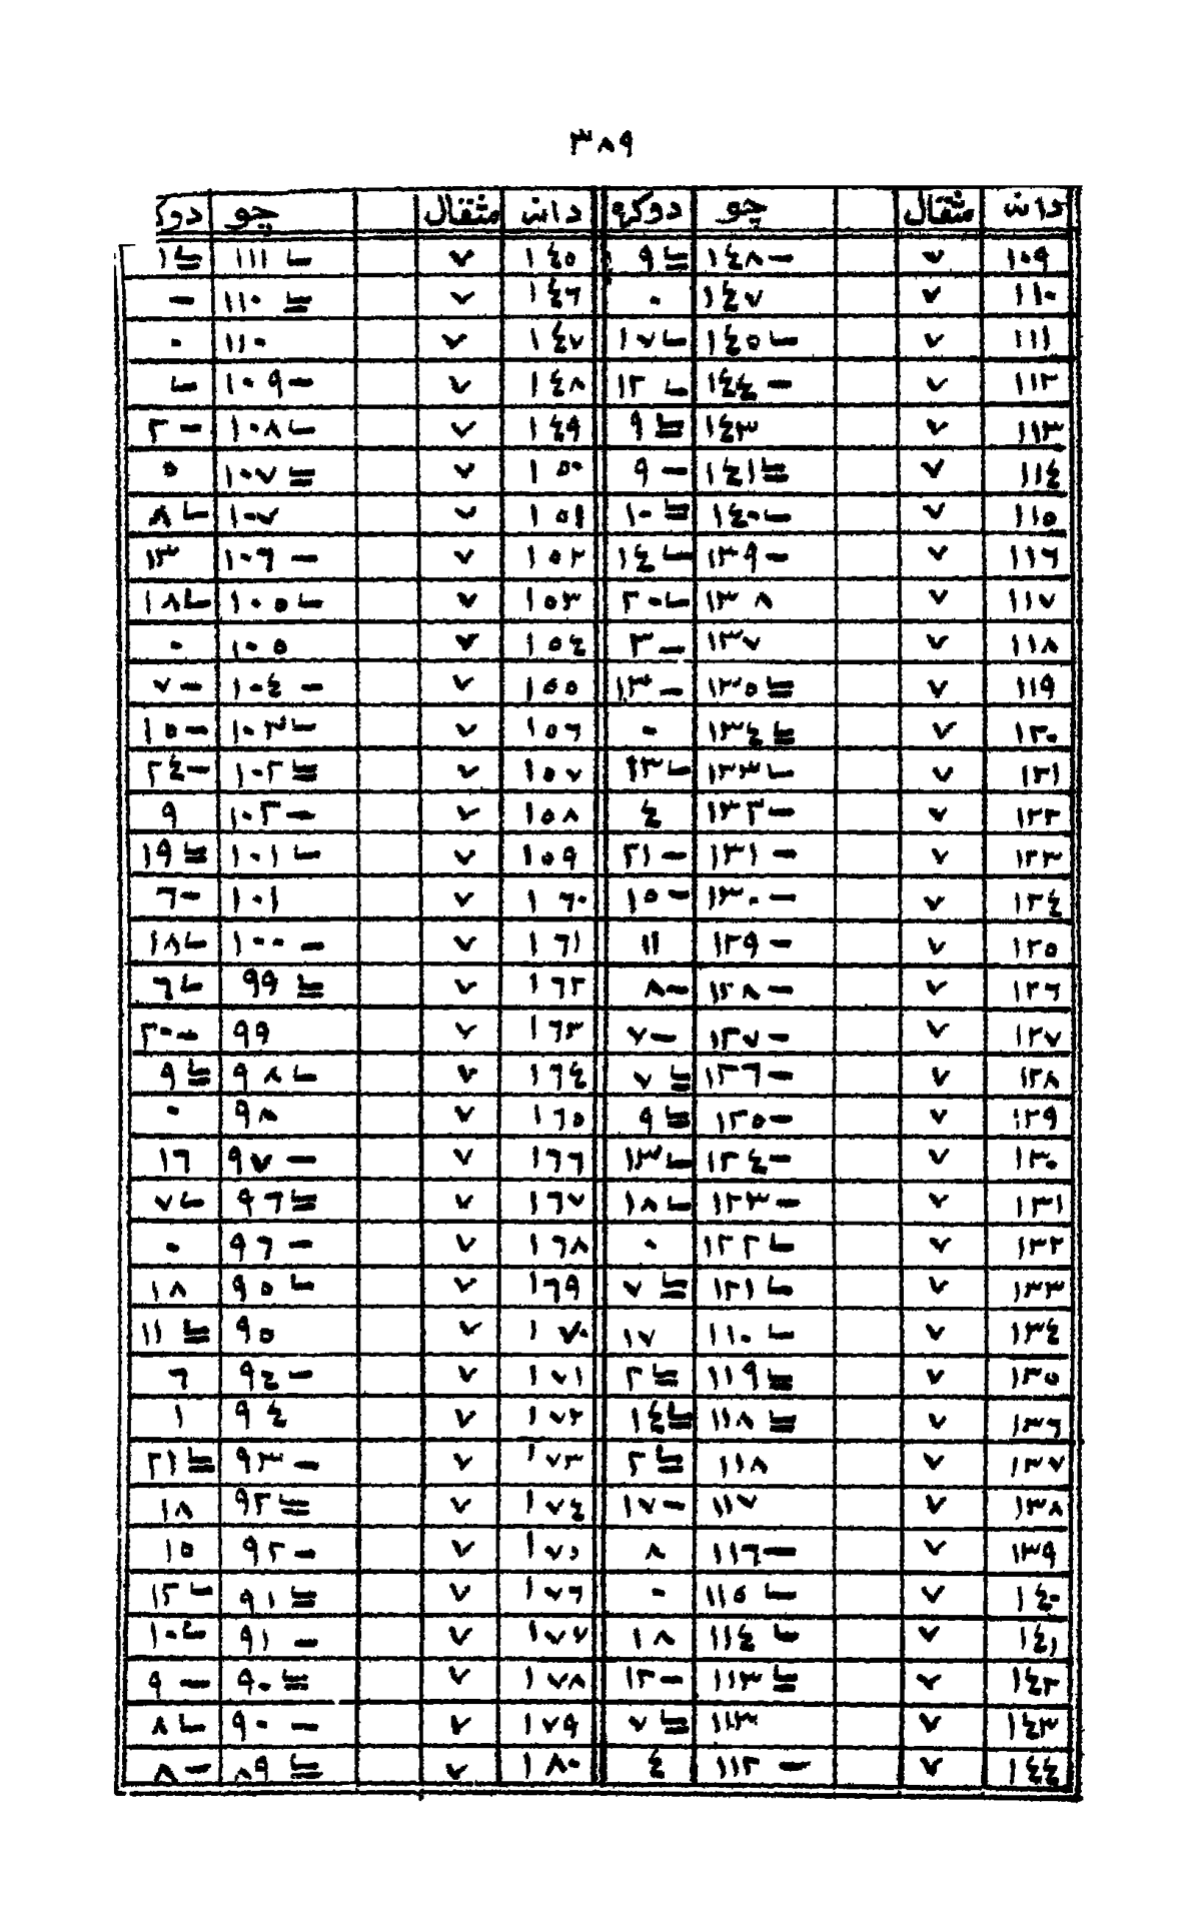 ٣٨٩
مثقال چو دوکه مثقال چو دوک
١٠٩ ٧ ١٤٨ - ٩ ≡ ١٤٥ ٧ ١١١ ∸ ١ ≡
١١٠ ٧ ١٤٧ ٠ ١٤٦ ٧ ١١٠ ≡ -
١١١ ٧ ١٤٥ ∸ ١٧ ∸ ١٤٧ ٧ ١١٠ ٠
١١٢ ٧ ١٤٤ - ١٢ ∸ ١٤٨ ٧ ١٠٩ - ∸
١١٣ ٧ ١٤٣ ٩ ≡ ١٤٩ ٧ ١٠٨ ∸ ٢ -
١١٤ ٧ ١٤١ ≡ ٩ - ١٥٠ ٧ ١٠٧ ≡ ٥
١١٥ ٧ ١٤٠ ∸ ١٠ ≡ ١٥١ ٧ ١٠٧ ٨ ∸
١١٦ ٧ ١٣٩ - ١٤ ∸ ١٥٢ ٧ ١٠٦ - ١٣
١١٧ ٧ ١٣٨ ٢٠ ∸ ١٥٣ ٧ ١٠٥ ∸ ١٨ ∸
١١٨ ٧ ١٣٧ ٣ - ١٥٤ ٧ ١٠٥ ٠
١١٩ ٧ ١٣٥ ≡ ١٣ - ١٥٥ ٧ ١٠٤ - ٧ -
١٢٠ ٧ ١٣٤ ≡ ٠ ١٥٦ ٧ ١٠٣ ∸ ١٥ -
١٢١ ٧ ١٣٣ ∸ ١٣ ∸ ١٥٧ ٧ ١٠٢ ≡ ٢٤ -
١٢٢ ٧ ١٣٢ - ٤ ١٥٨ ٧ ١٠٢ - ٩
١٢٣ ٧ ١٣١ - ٢١ - ١٥٩ ٧ ١٠١ ∸ ١٩ ≡
١٢٤ ٧ ١٣٠ - ١٥ - ١٦٠ ٧ ١٠١ ٦ -
١٢٥ ٧ ١٢٩ - ١١ ١٦١ ٧ ١٠٠ - ١٨ ∸
١٢٦ ٧ ١٢٨ - ٨ - ١٦٢ ٧ ٩٩ ≡ ٦ ∸
١٢٧ ٧ ١٢٧ - ٧ - ١٦٣ ٧ ٩٩ ٢٠ -
١٢٨ ٧ ١٢٦ - ٧ ≡ ١٦٤ ٧ ٩٨ ∸ ٩ ≡
١٢٩ ٧ ١٢٥ - ٩ ≡ ١٦٥ ٧ ٩٨ ٠
١٣٠ ٧ ١٢٤ - ١٣ ∸ ١٦٦ ٧ ٩٧ - ١٦
١٣١ ٧ ١٢٣ - ١٨ ∸ ١٦٧ ٧ ٩٦ ≡ ٧ ∸
١٣٢ ٧ ١٢٢ ∸ ٠ ١٦٨ ٧ ٩٦ - ٠
١٣٣ ٧ ١٢١ ∸ ٧ ≡ ١٦٩ ٧ ٩٥ ∸ ١٨
١٣٤ ٧ ١١٠ ∸ ١٧ ١٧٠ ٧ ٩٥ ١١ ≡
١٣٥ ٧ ١١٩ ≡ ٢ ≡ ١٧١ ٧ ٩٤ - ٦
١٣٦ ٧ ١١٨ ≡ ١٤ ≡ ١٧٢ ٧ ٩٤ ١
١٣٧ ٧ ١١٨ ٢ ≡ ١٧٣ ٧ ٩٣ - ٢١ ≡
١٣٨ ٧ ١١٧ ١٧ - ١٧٤ ٧ ٩٢ ≡ ١٨
١٣٩ ٧ ١١٦ - ٨ ١٧٥ ٧ ٩٢ - ١٥
١٤٠ ٧ ١١٥ ∸ ٠ ١٧٦ ٧ ٩١ ≡ ١٢ ∸
١٤١ ٧ ١١٤ ∸ ١٨ ١٧٧ ٧ ٩١ - ١٠ ∸
١٤٢ ٧ ١١٣ ≡ ١٢ - ١٧٨ ٧ ٩٠ ≡ ٩ -
١٤٣ ٧ ١١٣ ٧ ≡ ١٧٩ ٧ ٩٠ - ٨ ∸
١٤٤ ٧ ١١٢ - ٤ ١٨٠ ٧ ٨٩ ≡ ٨ -